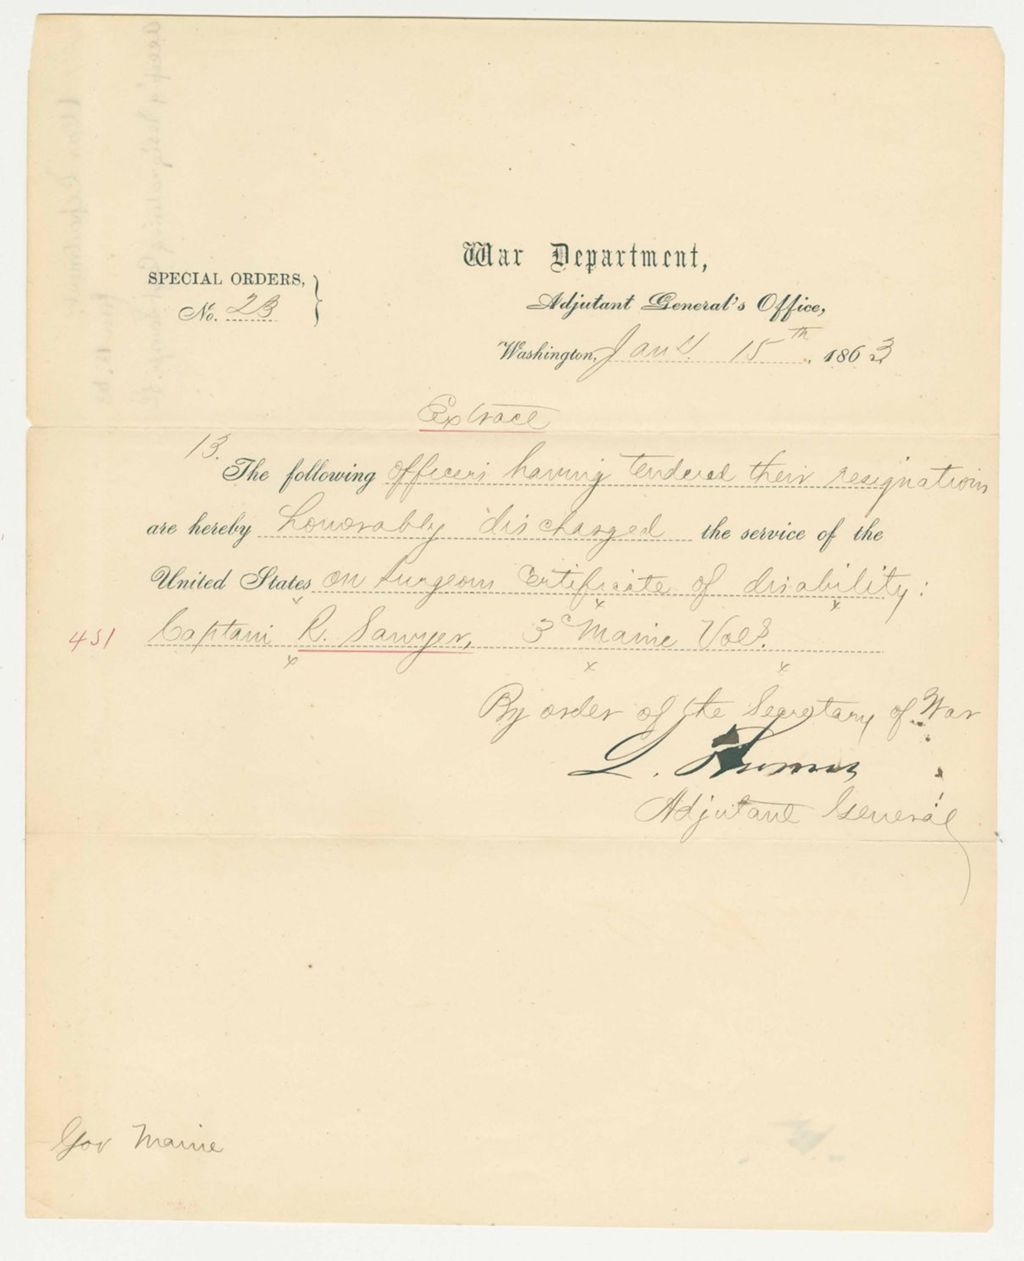 War Department,
SPECIAL ORDERS,
No. 23
Adjutant General's Office,
Washington, Jany 15th, 1863
Extract
13. The following officers having tendered their resignations
are hereby honorably discharged the service of the
United States on Surgeons Certificate of disability:
451 Captain R. Sawyer, 3d Maine Vols.
By order of the Secretary of War
L. Thomas
Adjutant General
Gov Maine